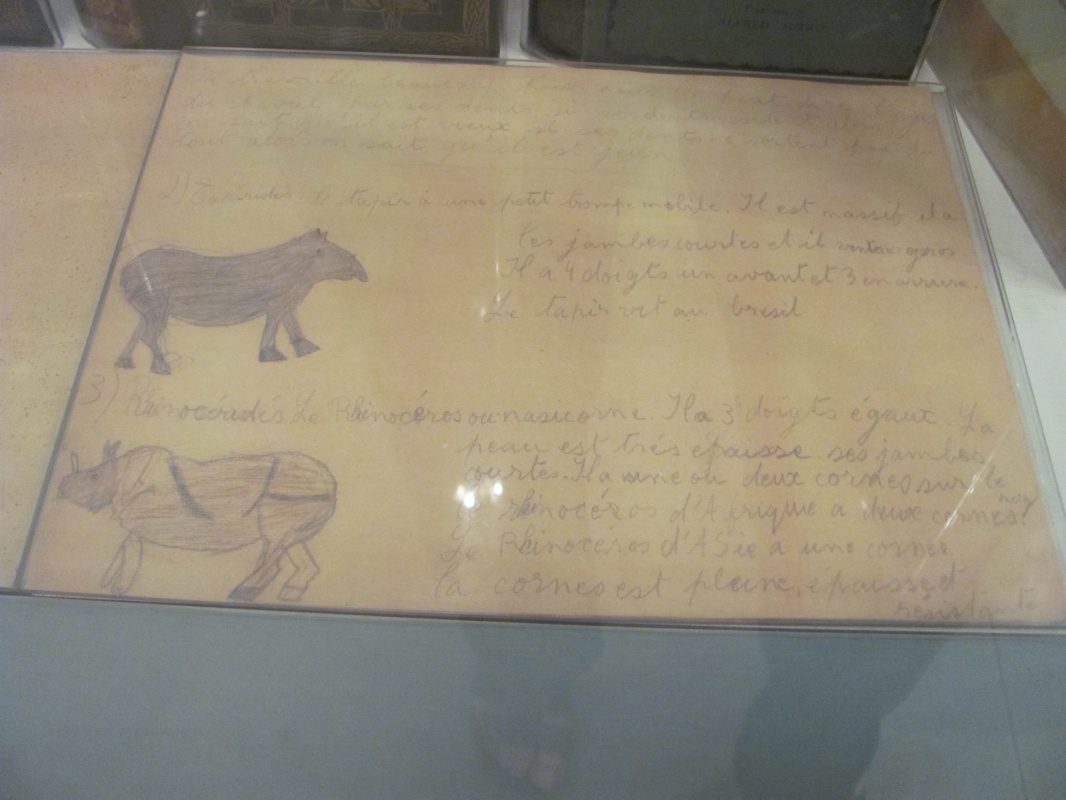 ALFRED
travaille
du cheval par ses dents. si ses dents sont
on sait qu'il est vieux si ses dents ne sortent pas du
tout alors on sait qu'il est jeune
2) Tapiridés le tapir à une petit trompe mobile. Il est massif il a
les jambes courtes et il ventre gros
Il a 4 doigts un avant et 3 en arriere.
Le tapir vit au bresil
3) Rhinocéridés Le Rhinocéros ou nasicorne. Il a 3 doigts égaux. La
peau est trés épaisse ses jambes
courtes. Il a une ou deux cornes sur le
nez
Le rhinocéros d'Afrique a deux cornes.
Le Rhinocéros d'ASie a une corne
la cornes est pleine, épaisse et
resistante